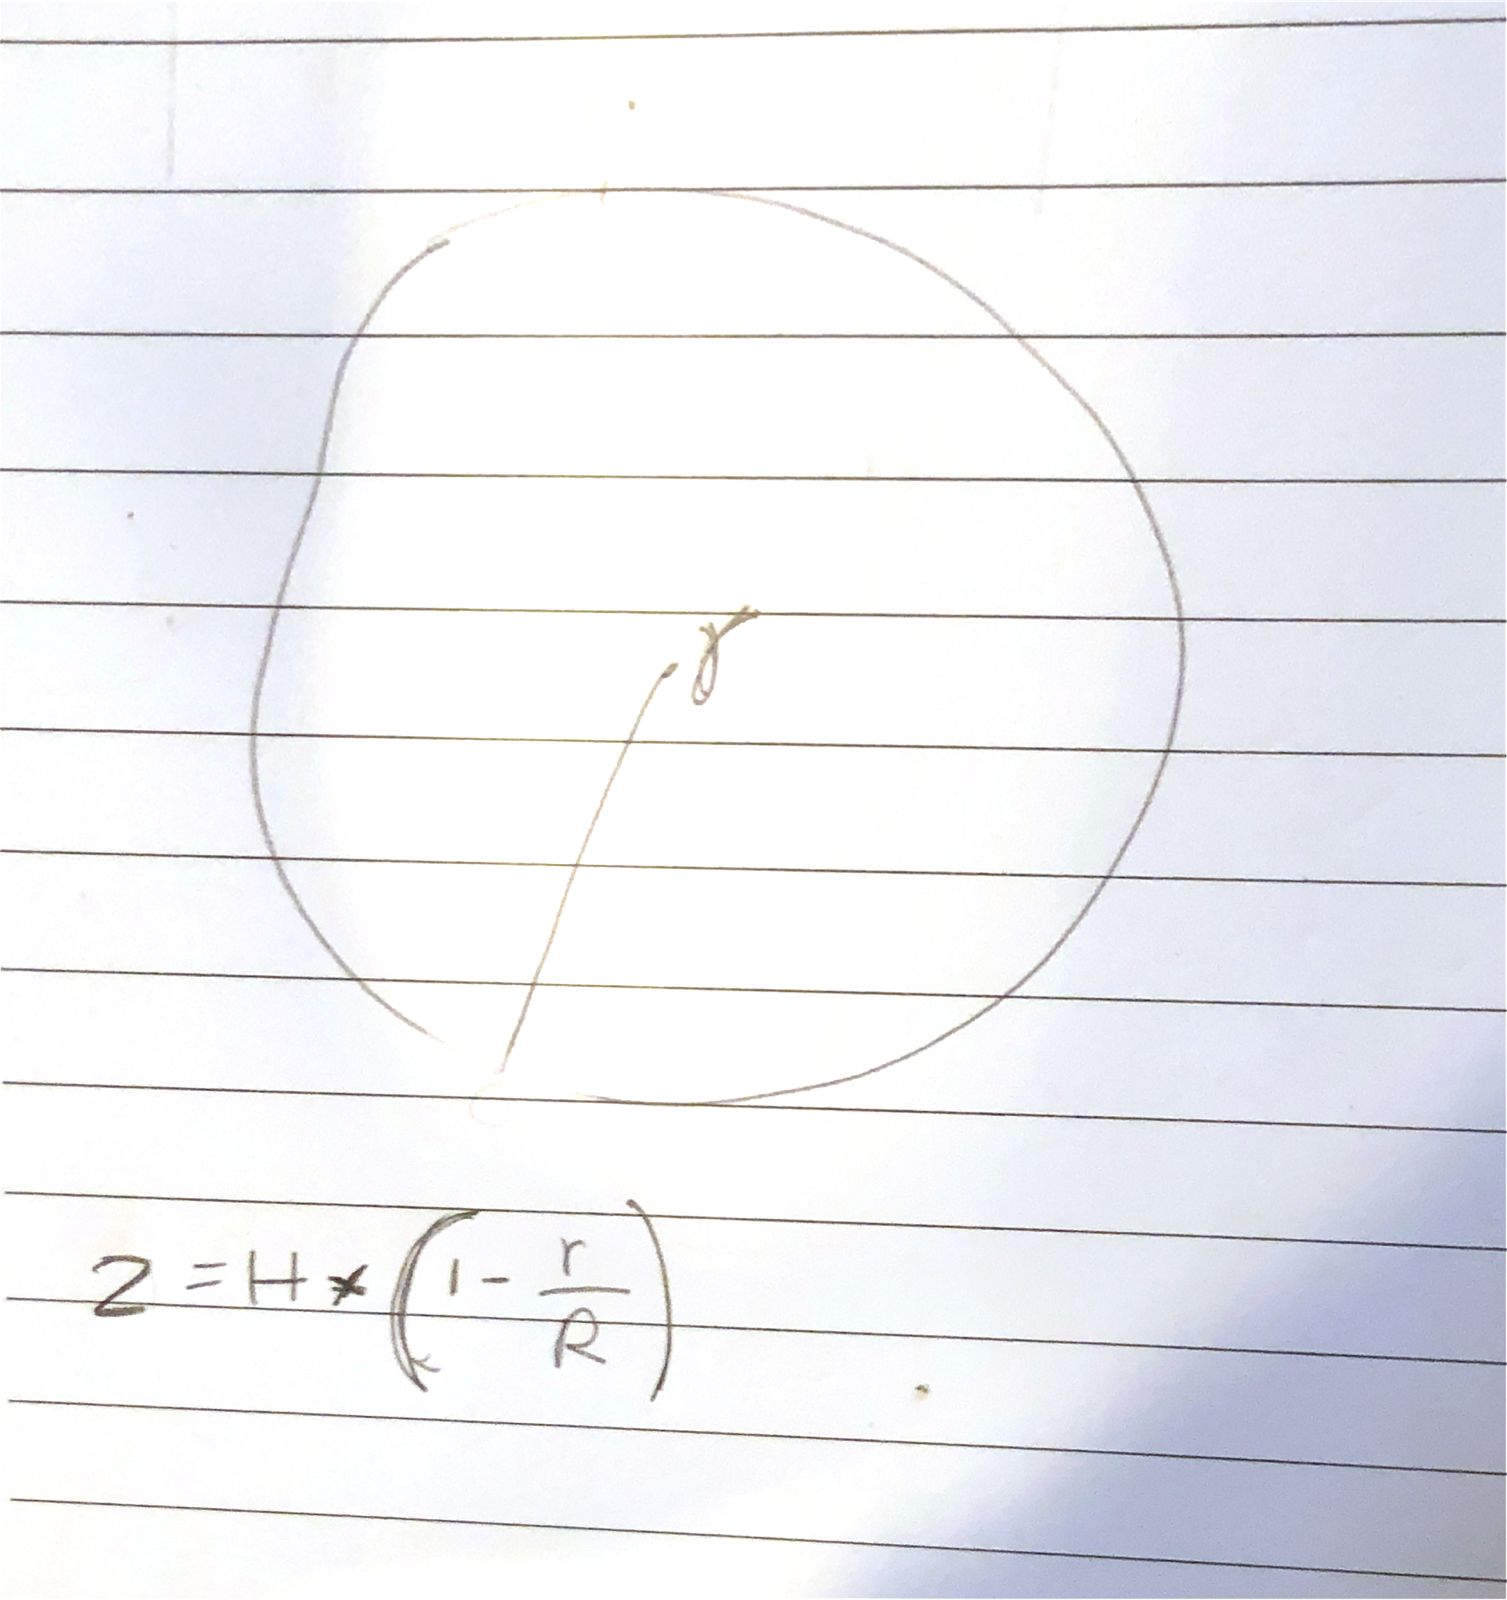 r
Z = H * (1 - r/R)